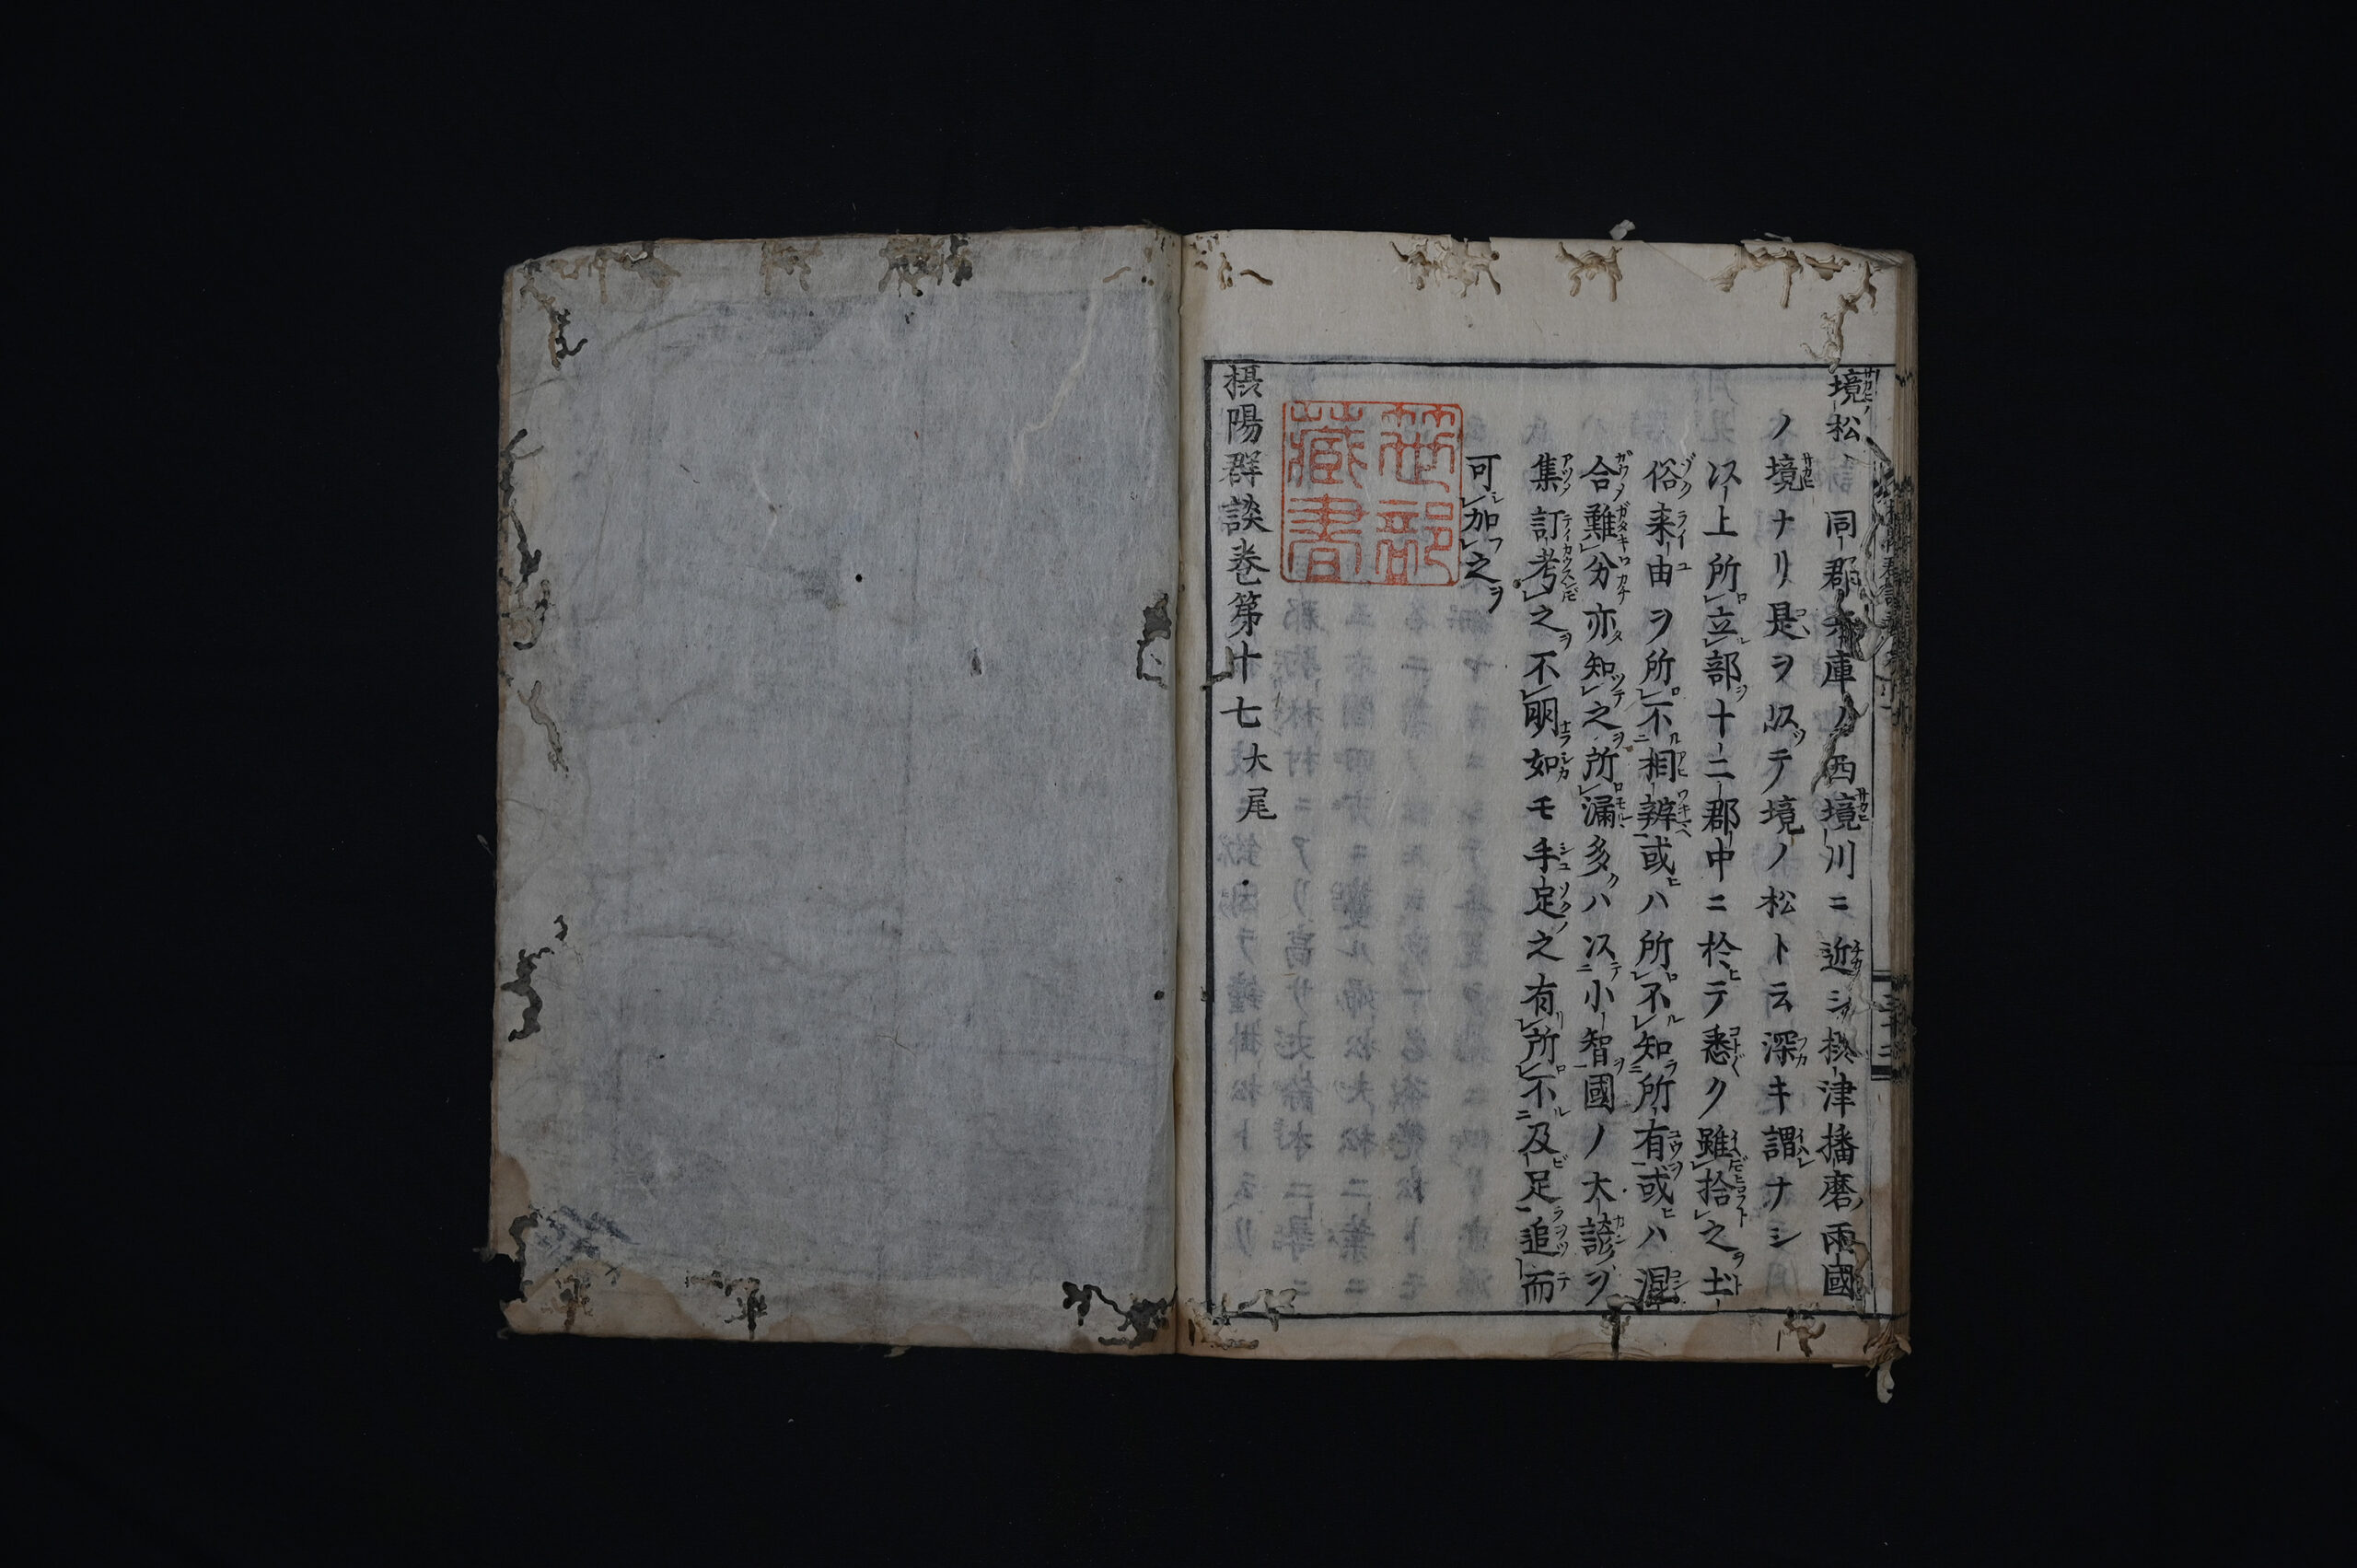 境松 同郡兵庫ノ西境川ニ近シ摂津播磨兩國
ノ境ナリ是ヲ以テ境ノ松ト云深キ謂ナシ
以上所立部十二郡中ニ於テ悉ク雖拾之土
俗来由ヲ所不相辨或ハ所不知所有或ハ混
合難分亦知之所漏多クハ以小智國ノ大誇ヲ
集訂考之不明如モ手足之有所不及足追而
可加之
摂陽群談巻第十七大尾
藏書